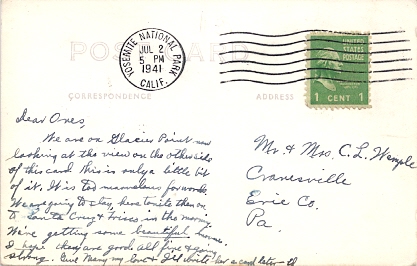 POST CARD
YOSEMITE NATIONAL PARK
JUL 2
5 PM
1941
CALIF.
UNITED
STATES
POSTAGE
1 CENT 1
CORRESPONDENCE
ADDRESS
Dear Ones,
We are on Glacier Point now
looking at the view on the other side
of this card. This is only a little bit
of it. It is too marvelous for words.
We are going to stay here tonite then on
to Santa Cruz & Frisco in the morning.
We're getting some beautiful
I hope chas are good all fine & going
strong. Give Mary my love & I'll write her a card later
Mr. & Mrs. C. L. Wemple
Cranesville
Erie Co.
Pa.